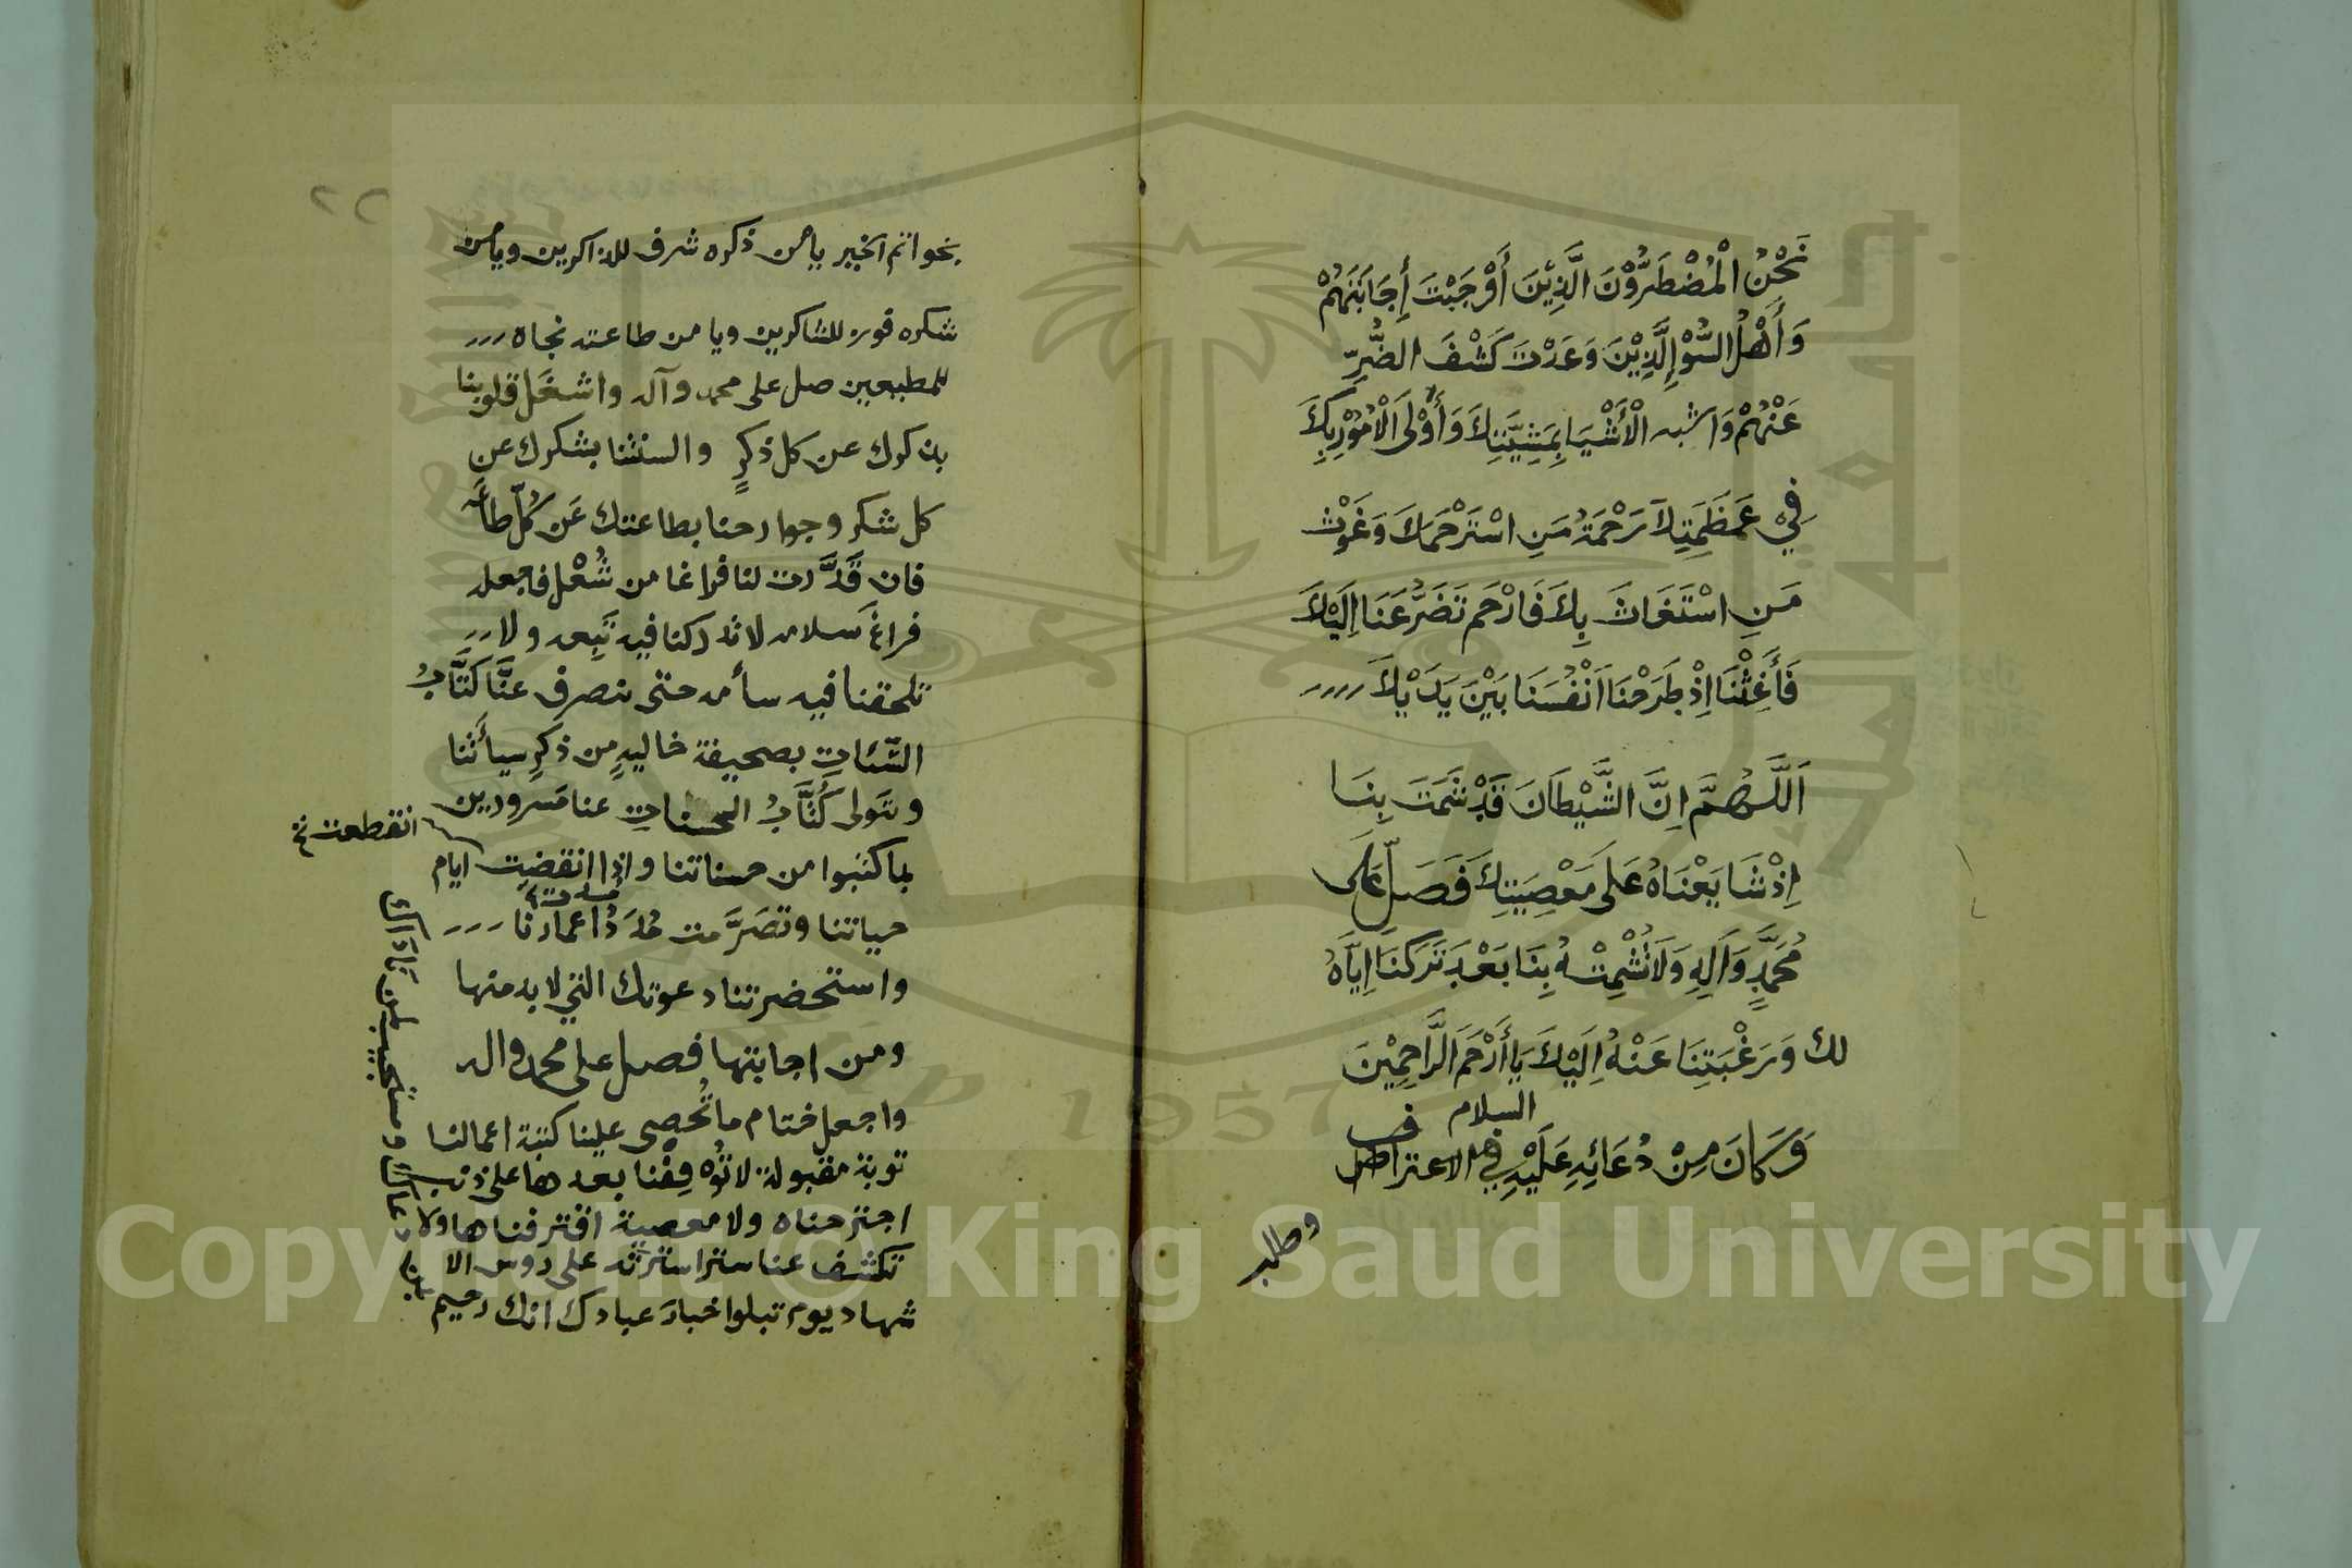 نَحْنُ الْمُضْطَرُّوْنَ الَّذِيْنَ أَوْجَبْتَ أِجَابَتَهُمْ
وَأَهْلُ السُّوْءِ الَّذِيْنَ وَعَدْتَ كَشْفَ الضُّرِّ
عَنْهُمْ وَاشبه الْأَشْيَا بِمَشِيَّتِكَ وَأَوْلَى الْأُمُوْرِ بِكَ
فِيْ عَظَمَتِكَ رَحْمَةُ مَنِ اسْتَرْحَمَكَ وَغَوْثُ
مَنِ اسْتَغَاثَ بِكَ فَارْحَمْ تَضَرُّعَنَا اِلَيْكَ
فَأَغِثْنَا اِذْ طَرَحْنَا اَنْفُسَنَا بَيْنَ يَدَيْكَ
اَللَّهُمَّ اِنَّ الشَّيْطَانَ قَدْ شَمَتَ بِنَا
اِذْ شَايَعْنَاهُ عَلَى مَعْصِيَتِكَ فَصَلِّ عَلَى
مُحَمَّدٍ وَآلِهِ وَلَا تُشْمِتْهُ بِنَا بَعْدَ تَرَكنَا اِيَّاهُ
لك وَرَغْبَتِنَا عَنْهُ اِلَيْكَ يَا أَرْحَمَ الرَّاحِمِيْنَ
السلام
وَكَانَ مِنْ دُعَائِهِ عَلَيْهِ فِي الاعتراف
وطلب
٢٢
بخواتم الخير يا من ذكره شرف للذاكرين ويا من
شكره فوره للشاكرين ويا من طاعته نجاه
للمطيعين صل على محمد وآله واشغَل قلوبنا
بذكرك عن كل ذكرٍ والسنتنا بشكرك عن
كل شكر وجوارحنا بطاعتك عَن كُلّ طاعَه
فان قَدَّرت لنا فراغا من شُغْل فاجعله
فراغَ سلامه لا تدركنا فيه تَبِعه ولا
تلحقنا فيه سأمه حتى ينصرف عنَّا كَتَّابُ
السّئات بصحيفة خاليهٍ من ذكرِ سيأتنا
ويتَولى كُتَّابُ الحسنات عنا مَسرورين
بما كتبوا من حسناتنا واذا انقضت ايام
انقطعت خ
حياتنا وتصَرَّمت مُدَدُ اعمارنا
واستحضرتنا دعوتك التي لا بد منها
ومن اجابتها فصل على محمد واله
واجعل ختام ما تُحصى علينا كتبة اعمالنا
توبة مقبولة لا تُوْقِفْنا بعدها على ذنب
اجترحناه ولا معصية اقترفناها ولا
تكشف عنا سترا سترته على روس الا
شهاد يوم تبلوا خبار عبادك انك رحيم
بمن دعاك ومستجيب لمن ناداك